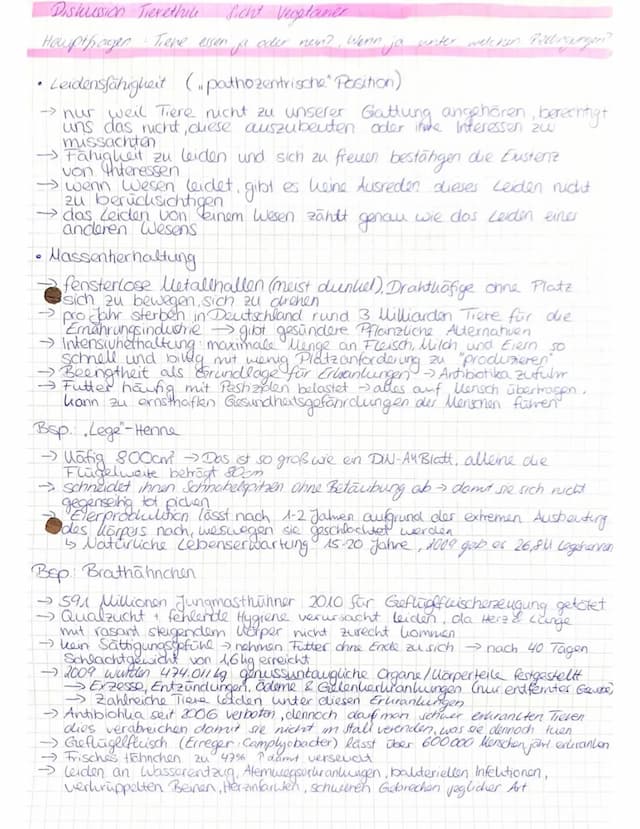 Diskussion Tierethik Sicht Vegetarier
Hauptfragen: Tiere essen ja oder nein?, Wenn ja unter welchen Bedingungen?
• Leidensfähigkeit („pathozentrische" Position)
→ nur weil Tiere nicht zu unserer Gattung angehören, berechtigt
uns das nicht, diese auszubeuten oder ihre Interessen zu
missachten
→ Fähigkeit zu leiden und sich zu freuen bestätigen die Existenz
von Interessen
→ wenn Wesen leidet, gibt es keine Ausreden dieses Leiden nicht
zu berücksichtigen
→ das Leiden von einem Wesen zählt genau wie das Leiden eines
anderen Wesens
• Massentierhaltung
→ fensterlose Metallhallen (meist dunkel), Drahtkäfige ohne Platz
sich zu bewegen, sich zu drehen
→ pro Jahr sterben in Deutschland rund 3 Milliarden Tiere für die
Ernährungsindustrie → gibt gesündere Pflanzliche Alternativen
→ Intensivhaltung: maximale Menge an Fleisch, Milch und Eiern so
schnell und billig mit wenig Platzanforderung zu "produzieren"
→ Beengtheit als Grundlage für Erkrankungen → Antibiotika zufuhr
→ Futter häufig mit Pestiziden belastet → alles auf Mensch übertragen,
kann zu ernsthaften Gesundheitsgefährdungen der Menschen führen
Bsp: „Lege"-Henne
→ Käfig 800cm² → Das ist so groß wie ein DIN-A4 Blatt, alleine die
Flügelweite beträgt 80cm
→ schneidet ihnen Schnabelspitzen ohne Betäubung ab → damit sie sich nicht
gegenseitig tot picken
→ Eierproduktion lässt nach 1-2 Jahren aufgrund der extremen Ausbeutung
des Körpers nach, weswegen sie geschlachtet werden
↳ Natürliche Lebenserwartung 15-30 Jahre, 2009 gab es 26,8M Legehennen
Bsp: Brathähnchen
→ 591 Millionen Jungmasthühner 2010 für Geflügelfleischerzeugung getötet
→ Qualzucht + fehlende Hygiene verursacht leiden, da Herz & Lunge
mit rasant steigendem Körper nicht zurecht kommen
→ kein Sättigungsgefühl → nehmen Futter ohne Ende zu sich → nach 40 Tagen
Schlachtgewicht von 1,6kg erreicht
→ 2009 wurden 474.011kg genussuntaugliche Organe/Körperteile festgestellt
→ Entzündungen, Ödeme & Gelenkerkrankungen (nur entfernter
→ Zahlreiche Tiere leiden unter diesen Erkrankungen
→ Antibiotika seit 2006 verboten, dennoch darf man schwer erkrankten Tieren
dies verabreichen damit sie nicht im Stall verenden, was sie dennoch tuen
→ Geflügelfleisch (Erreger: Camplyobacter) lässt über 600000 Menschen jährl. erkranken
→ Frisches Hähnchen zu 47% damit verseucht
→ leiden an Wasserentzug, Atemwegserkrankungen, bakteriellen Infektionen,
verkrüppelten Beinen, Herzinfarkten, schweren Gebrechen jeglicher Art